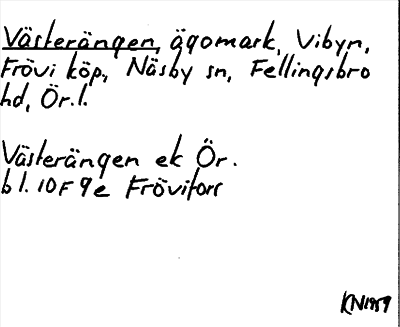 Västerängen, ägomark, Vibyn,
Frövi köp, Näsby sn, Fellingsbro
hd, Ör.l.
Västerängen ek Ör.
bl. 10F 9e Frövifors
KN1959